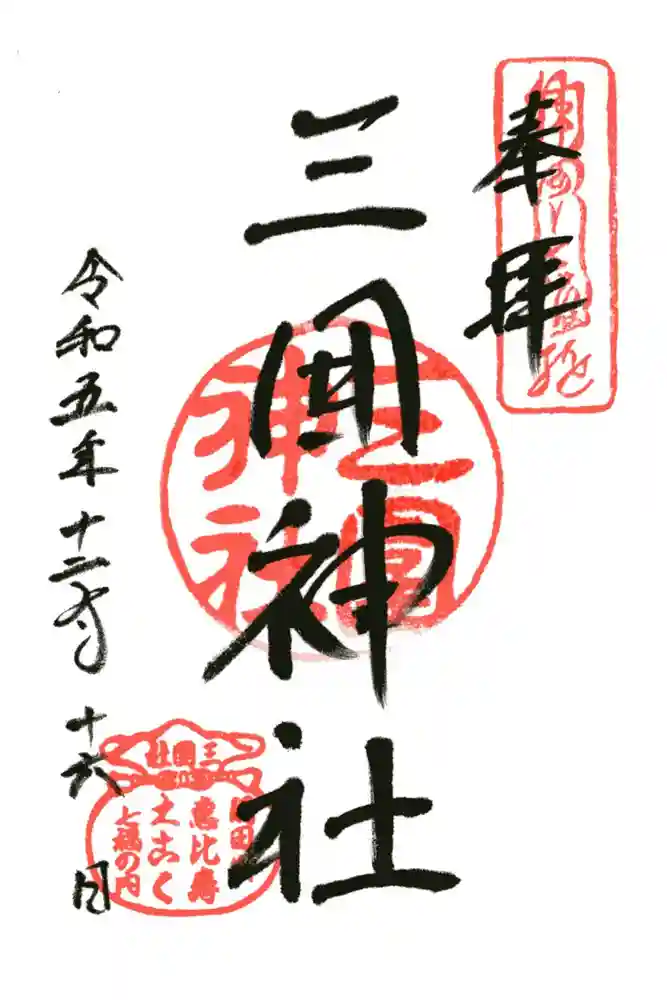 奉拝
三囲神社
令和五年十二月十六日
三圍神社
三囲社
惠比寿
七福の内